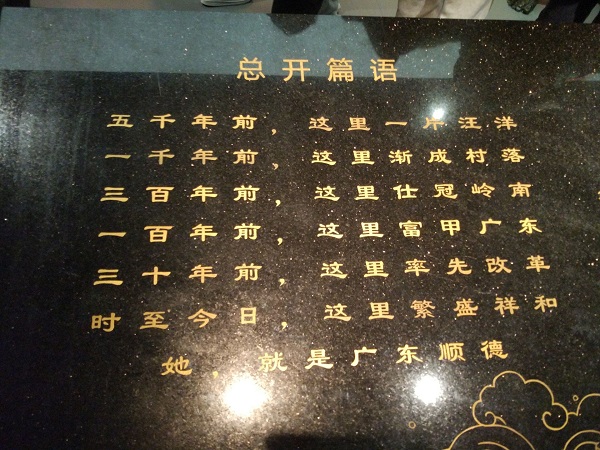 总开篇语
五千年前，这里一片汪洋
一千年前，这里渐成村落
三百年前，这里仕冠岭南
一百年前，这里富甲广东
三十年前，这里率先改革
时至今日，这里繁盛祥和
她，就是广东顺德